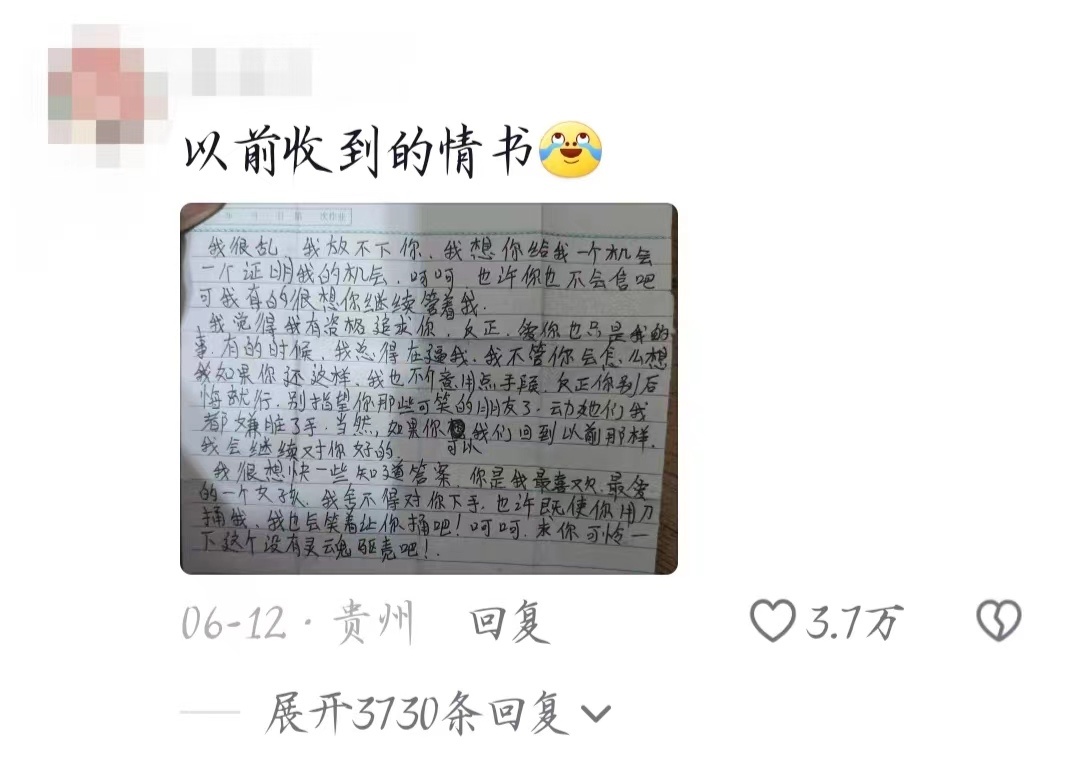 以前收到的情书😂
年 月 日 第 次作业
我很乱，我放不下你，我想你给我一个机会
一个证明我的机会，呵呵 也许你也不会信吧
可我真的很想你继续管着我.
我觉得我有资格追求你，反正，爱你也只是我的
事，有的时候，我总得在逼我，我不管你会怎么想
我如果你还这样，我也不介意用点手段，反正你别后
悔就行，别指望你那些可笑的朋友了，动她们我
都嫌脏了手，当然，如果你 我们回到以前那样，
可以
我会继续对你好的，
我很想快一些知道答案，你是我最喜欢，最爱
的一个女孩，我舍不得对你下手，也许既使你用刀
捅我，我也会笑着让你捅吧！呵呵，求你可怜一
下这个没有灵魂躯壳吧！.
06-12 · 贵州 回复 3.7万
展开3730条回复